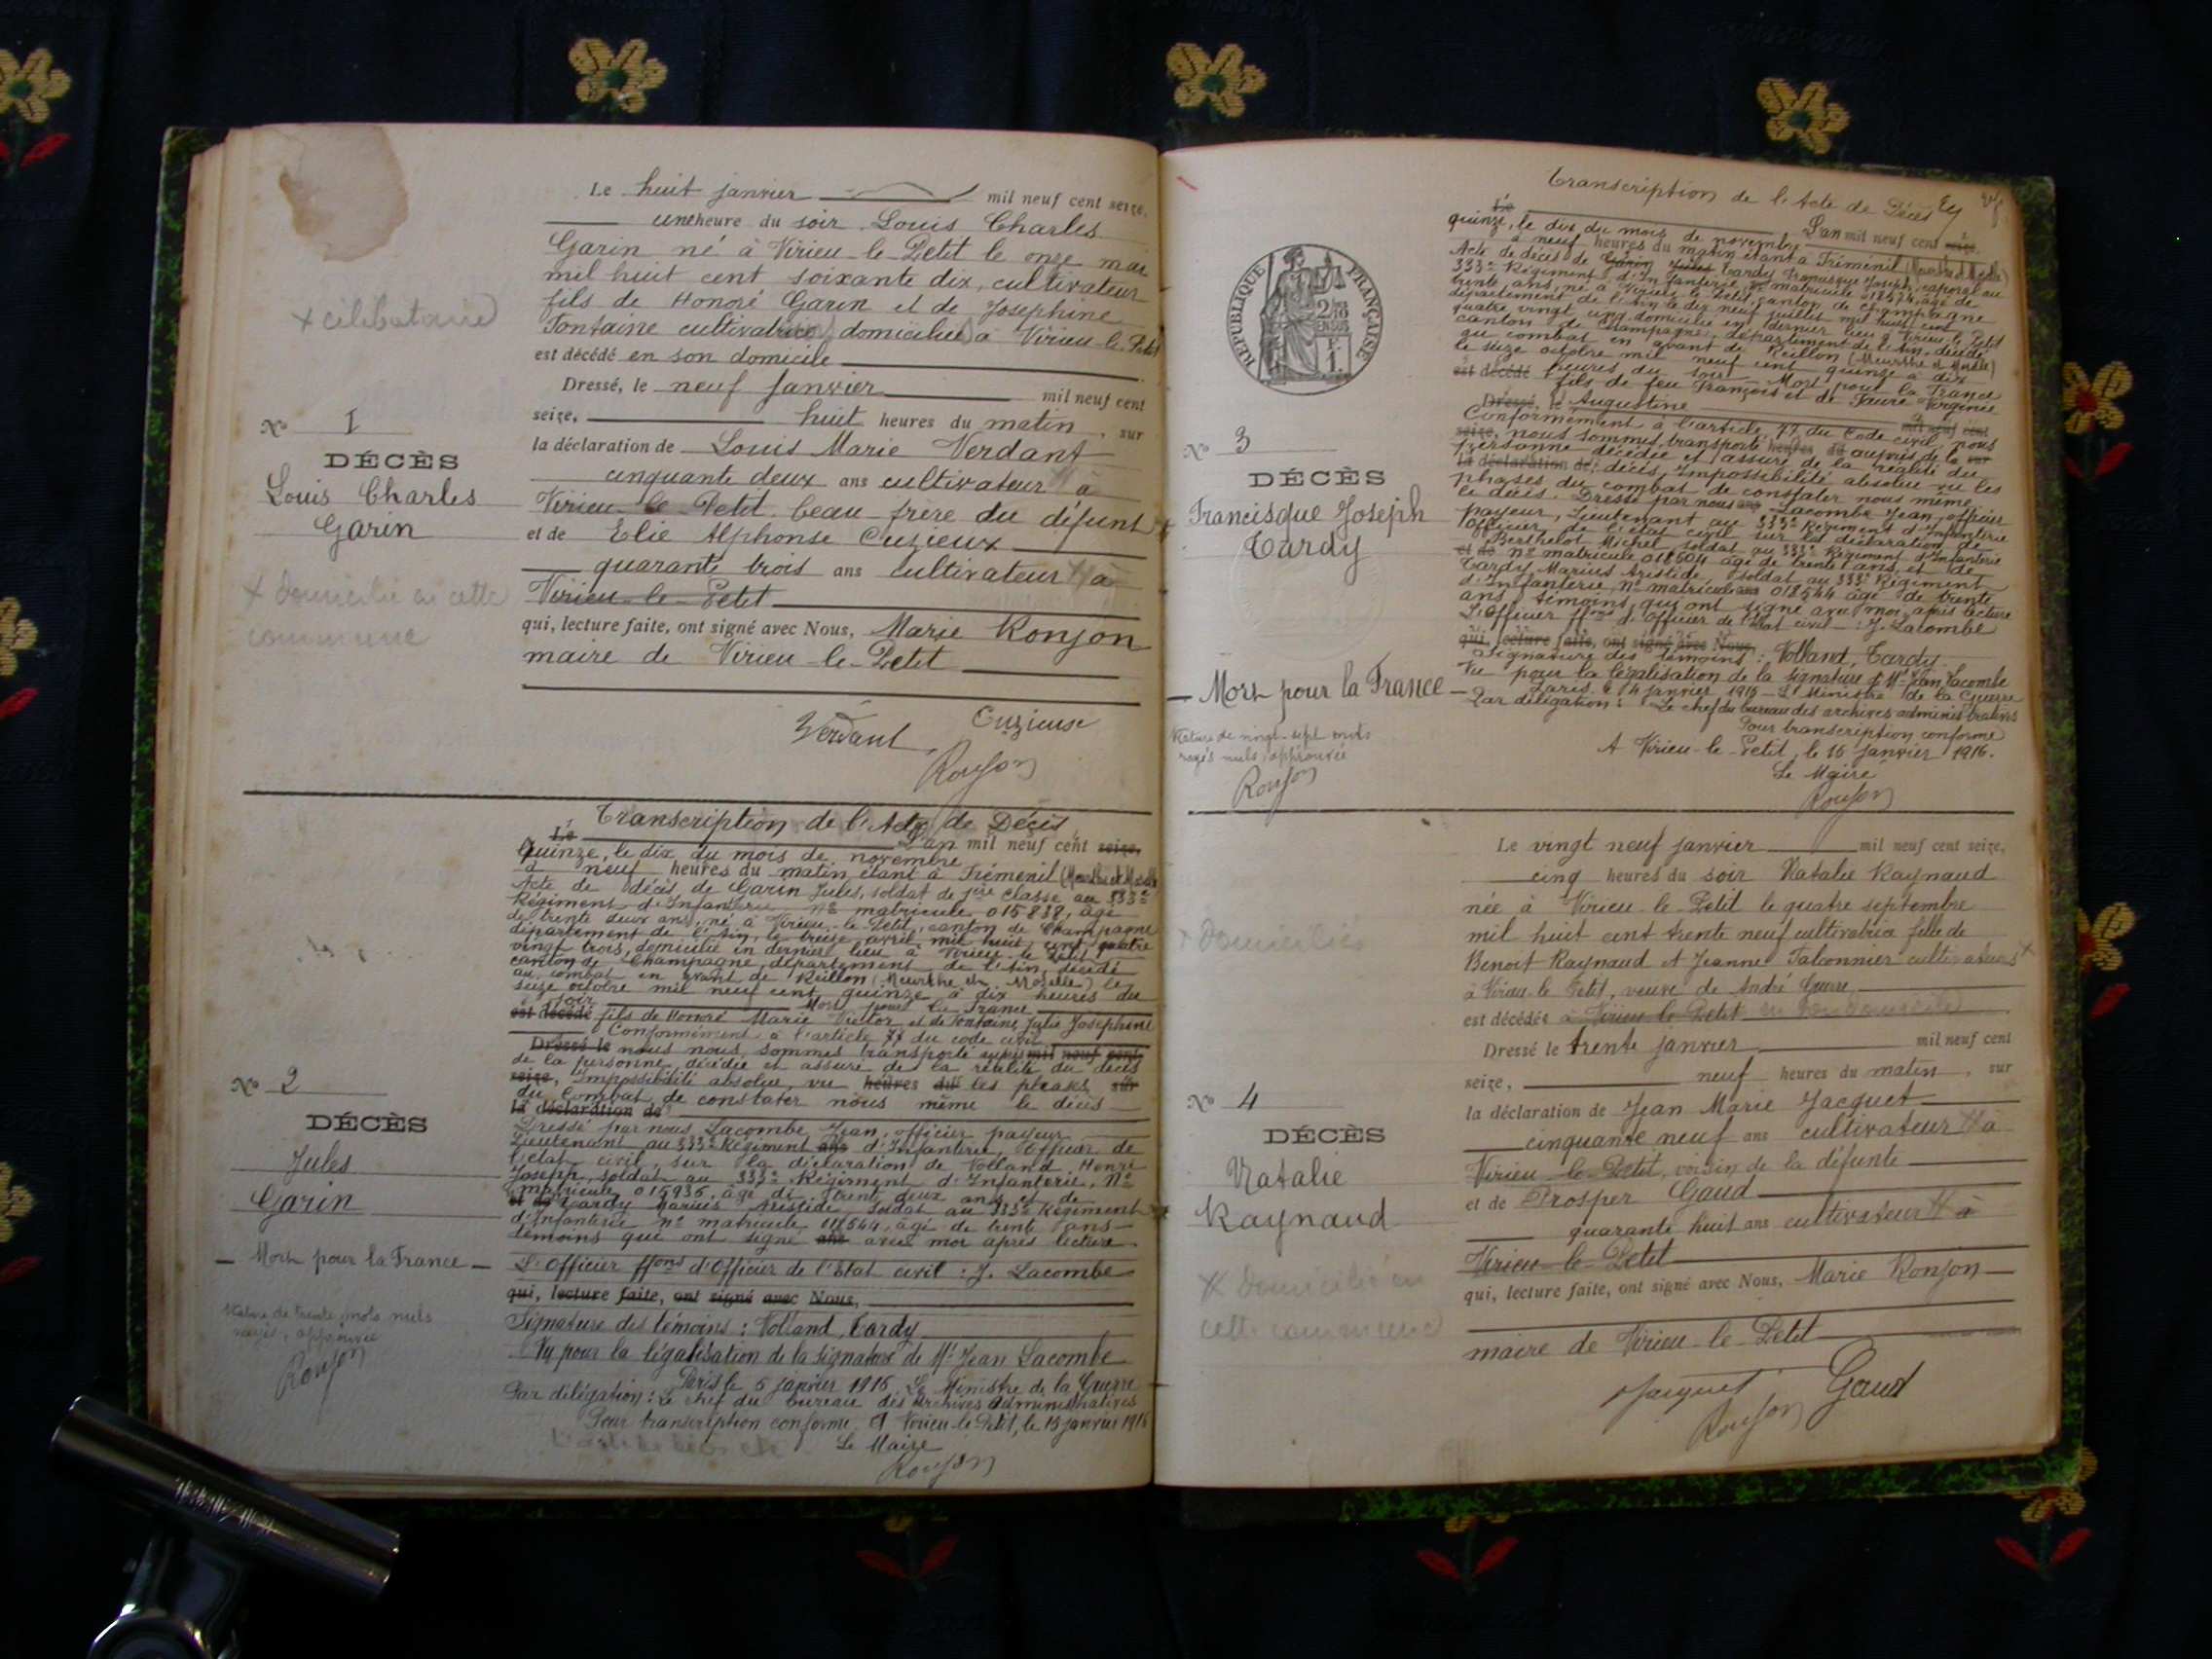 Le huit janvier mil neuf cent seize,
une heure du soir Louis Charles
Garin né à Virieu-le-Petit le onze mai
mil huit cent soixante dix, cultivateur
fils de Honoré Garin et de Josephine
Fontaine cultivatrice domiciliée à Virieu-le-Petit
est décédé en son domicile
Dressé, le neuf janvier mil neuf cent
seize, huit heures du matin, sur
la déclaration de Louis Marie Verdant
cinquante deux ans cultivateur à
Virieu-le-Petit beau-frère du défunt
et de Elie Alphonse Cuzieux
quarante trois ans cultivateur à
Virieu-le-Petit
qui, lecture faite, ont signé avec Nous, Marie Ronjon
maire de Virieu-le-Petit
Verdant Cuzieux
Ronjon
+ célibataire
No 1
DÉCÈS
Louis Charles
Garin
+ domicilié en cette
commune
Transcription de l'Acte de Décès
Le L'an mil neuf cent seize,
quinze, le dix du mois de novembre
à neuf heures du matin étant à Fréménil (Meurthe et Moselle)
Acte de décès de Garin Jules, soldat de 1ère classe au 333e
Régiment d'Infanterie No matricule 015838, âgé
de trente deux ans, né à Virieu-le-Petit, canton de Champagne
département de l'Ain, le treize avril mil huit cent quatre
vingt trois, domicilié en dernier lieu à Virieu-le-Petit
canton de Champagne, département de l'Ain, décédé
au combat en avant de Reillon (Meurthe et Moselle) le
seize octobre mil neuf cent quinze à dix heures du
soir Mort pour la France
est décédé fils de Honoré Marie Victor et de Fontaine Julie Josephine
Conformément à l'article 77 du code civil
Dressé le nous nous sommes transporté auprès mil neuf cent
de la personne décédée et assuré de la réalité du décès
seize, Impossibilité absolue, vu heures du les phases sur
du combat de constater nous même le décès
la déclaration de
Dressé par nous Lacombe Jean, officier payeur
Lieutenant au 333e Régiment ans d'Infanterie, Officier de
l'état civil, sur la déclaration de Volland Henri
Joseph, soldat au 333e Régiment d'Infanterie, No
matricule 015935, âgé de trente deux ans et de
et de Tardy Marius Aristide, soldat au 333e Régiment
d'Infanterie No matricule 018544, âgé de trente ans
témoins qui ont signé ans avec moi après lecture
L'Officier ffons d'Officier de l'Etat civil : J. Lacombe
qui, lecture faite, ont signé avec Nous,
Signature des témoins : Volland, Tardy
Vu pour la légalisation de la signature de Mr Jean Lacombe
Paris le 5 janvier 1916, Le Ministre de la Guerre
Par délégation : Le chef du bureau des Archives administratives
Pour transcription conforme, A Virieu-le-Petit, le 15 janvier 1916
Le Maire
Ronjon
No 2
DÉCÈS
Jules
Garin
— Mort pour la France —
Rature de trente mots nuls
rayés, approuvée
Ronjon
Transcription de l'Acte de Décès
Le L'an mil neuf cent seize,
quinze, le dix du mois de novembre
à neuf heures du matin étant à Fréménil (Meurthe et Moselle)
Acte de décès de Garin Jules Tardy Francisque Joseph, caporal au
333e Régiment d'Infanterie, No matricule 018574, âgé de
trente ans, né à Virieu-le-Petit, canton de Champagne
département de l'Ain le dix neuf juillet mil huit cent
quatre vingt cinq domicilié en dernier lieu à Virieu-le-Petit
canton de Champagne, département de l'Ain, décédé
au combat en avant de Reillon (Meurthe et Moselle)
le seize octobre mil neuf cent quinze à dix
est décédé heures du soir Mort pour la France
fils de feu François et de Favre Virginie
Dressé, le Augustine mil neuf cent
Conformément à l'article 77 du Code civil nous
seize, nous sommes transporté heures du auprès de la sur
personne décédée et assuré de la réalité du
la déclaration de décès, Impossibilité absolue vu les
phases du combat de constater nous même
le décès. Dressé par nous ans Lacombe Jean, officier
payeur, Lieutenant au 333e Régiment d'Infanterie
Officier de l'état civil sur la déclaration de
Berthelot Michel soldat au 333e Régiment d'Infanterie
et de No matricule 018504 âgé de trente ans, et de
Tardy Marius Aristide, soldat au 333e Régiment
d'Infanterie, No matricule ans 018544 âgé de trente
ans, témoins qui ont signé avec moi après lecture
L'Officier ffons d'Officier de l'Etat civil : J. Lacombe
qui, lecture faite, ont signé avec Nous,
Signature des témoins : Volland, Tardy
Vu pour la légalisation de la signature de Mr Jean Lacombe
Paris le 14 janvier 1916 — Le Ministre de la Guerre
Par délégation : Le chef du bureau des archives administratives
Pour transcription conforme
A Virieu-le-Petit, le 16 janvier 1916.
Le Maire
Ronjon
REPUBLIQUE FRANÇAISE
2/10
EN SUS
No 3
DÉCÈS
Francisque Joseph
Tardy
— Mort pour la France —
Rature de vingt-sept mots
rayés nuls, approuvée
Ronjon
Le vingt neuf janvier mil neuf cent seize,
cinq heures du soir Natalie Raynaud
née à Virieu-le-Petit le quatre septembre
mil huit cent trente neuf cultivatrice fille de
Benoit Raynaud et Jeanne Falconnier cultivateurs +
à Virieu-le-Petit, veuve de André
est décédée à Virieu-le-Petit en son domicile
Dressé le trente janvier mil neuf cent
seize, neuf heures du matin, sur
la déclaration de Jean Marie Jacquet
cinquante neuf ans cultivateur à
Virieu-le-Petit, voisin de la défunte
et de Prosper Gaud
quarante huit ans cultivateur à
Virieu-le-Petit
qui, lecture faite, ont signé avec Nous, Marie Ronjon
maire de Virieu-le-Petit
Jacquet Gaud
Ronjon
+ domiciliés
No 4
DÉCÈS
Natalie
Raynaud
domicilié en
cette commune